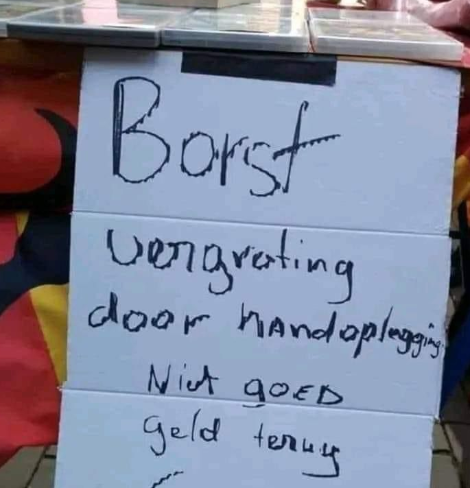 Borst
vergroting
door handoplegging
Niet GOED
geld terug